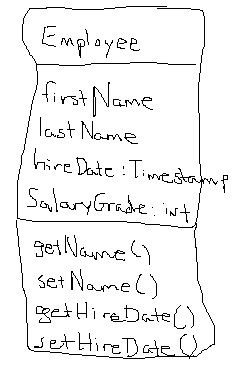 Employee
firstName
lastName
hireDate: Timestamp
SalaryGrade: int
getName()
setName()
getHireDate()
setHireDate()